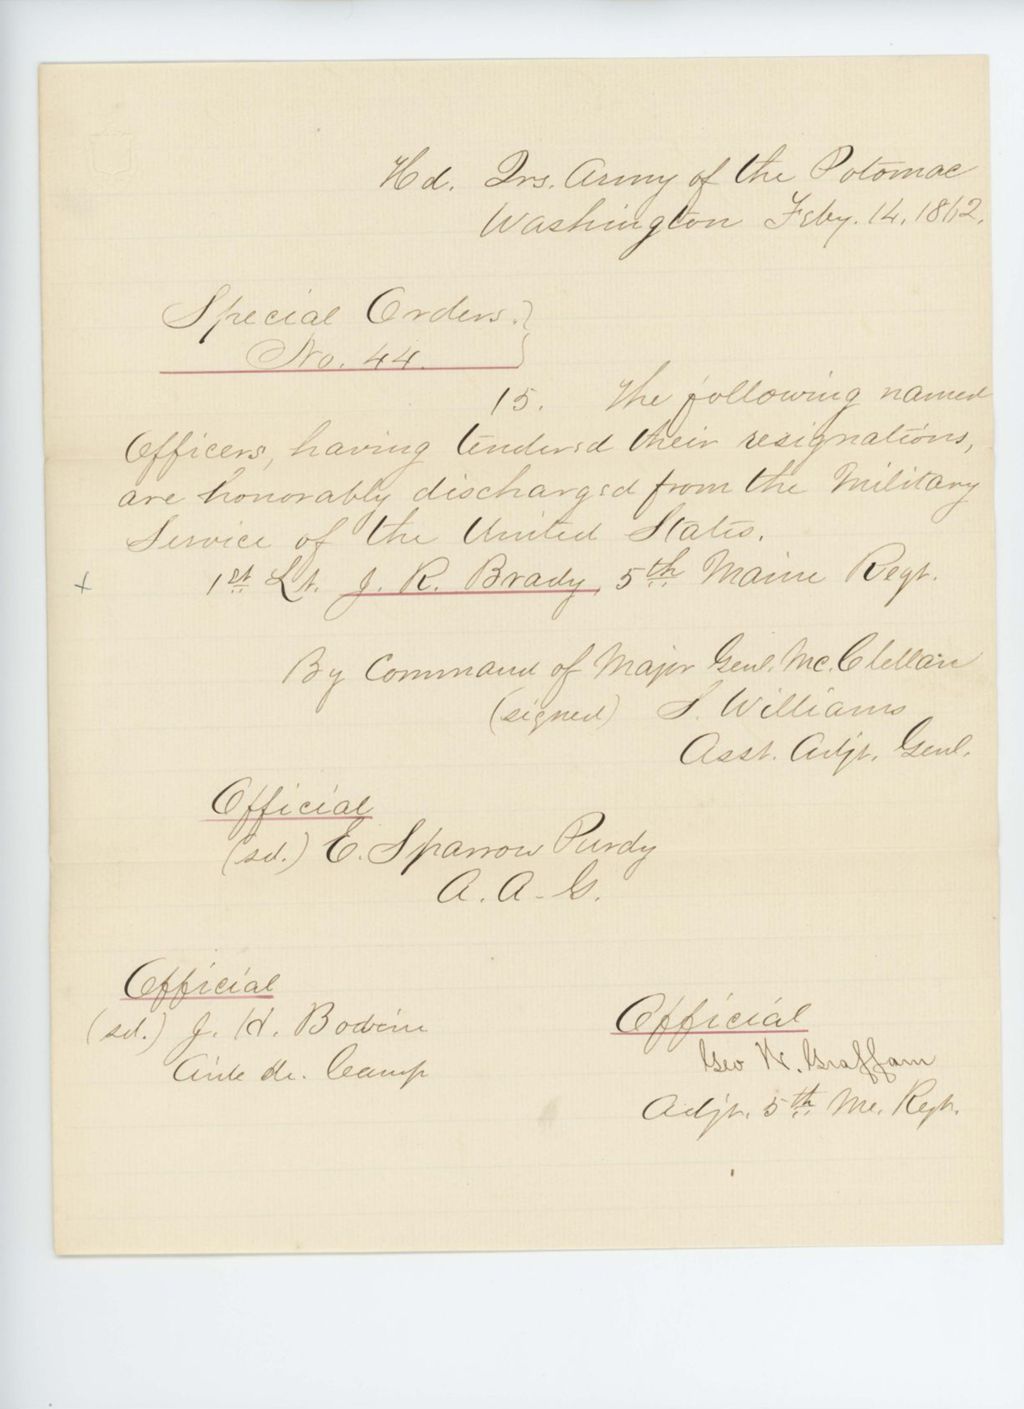 Hd. Qrs. Army of the Potomac
Washington Feby. 14. 1862.
Special Orders. }
No. 44. }
15. The following named
Officers, having tendered their resignations,
are honorably discharged from the Military
Service of the United States.
x 1st Lt. J. R. Brady, 5th Maine Regt.
By Command of Major Genl. Mc.Clellan
(signed) S. Williams
Asst. Adjt. Genl.
Official
(sd.) E. Sparrow Purdy
A. A. G.
Official
(sd.) J. H. Bodine
Aide de. Camp
Official
Geo W. Graffam
Adjt. 5th Me. Regt.